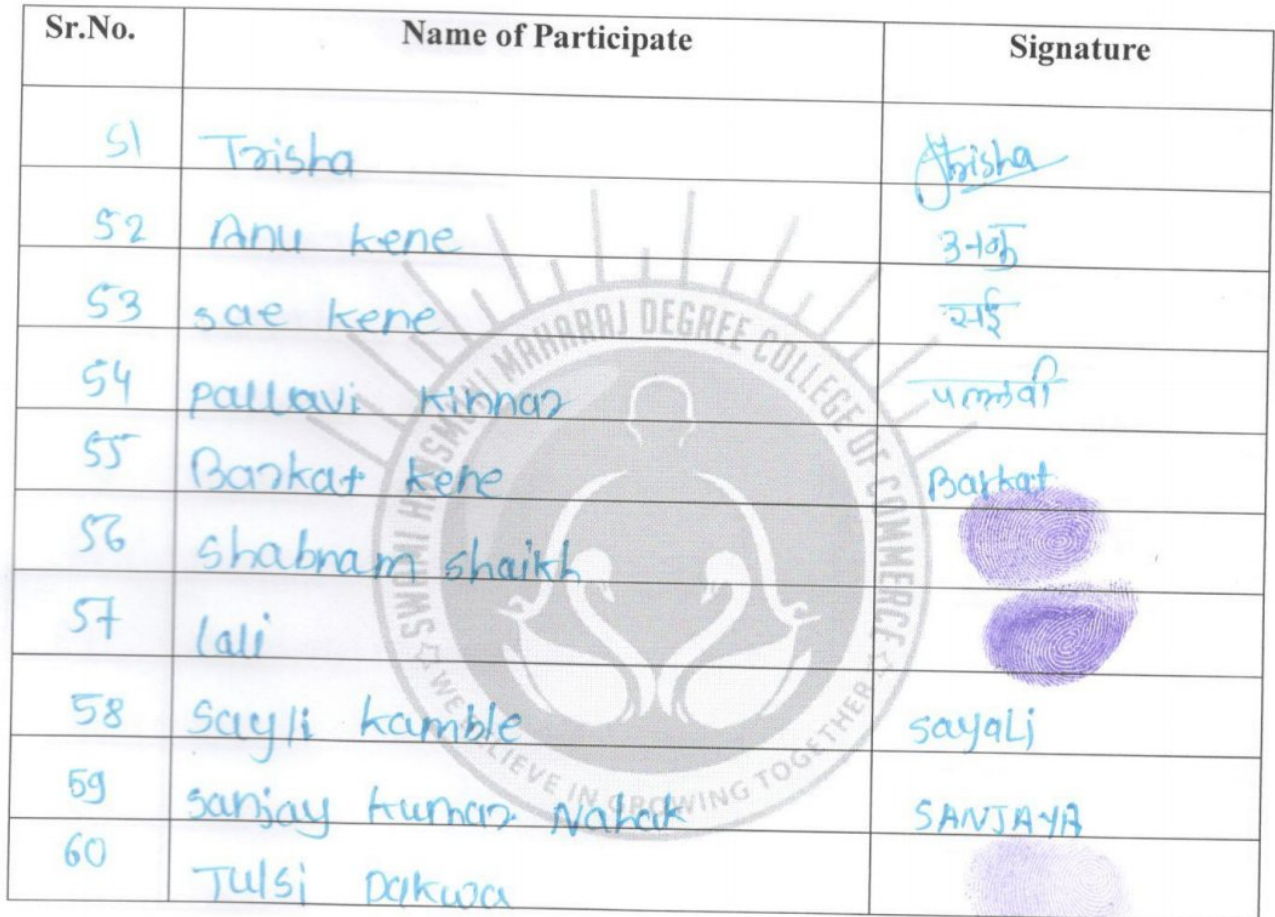 Sr.No. Name of Participate Signature
51 Trisha Trisha
52 Anu kene
53 sae kene सई
54 pallavi kinnar पल्लवी
55 Barkat kene Barkat
56 shabnam shaikh
57 lali
58 Sayli kamble sayali
59 sanjay kumar Nahak SANJAYA
60 Tulsi Dakwa
SWAMI HANSMUNI MAHARAJ DEGREE COLLEGE OF COMMERCE
WE BELIEVE IN GROWING TOGETHER